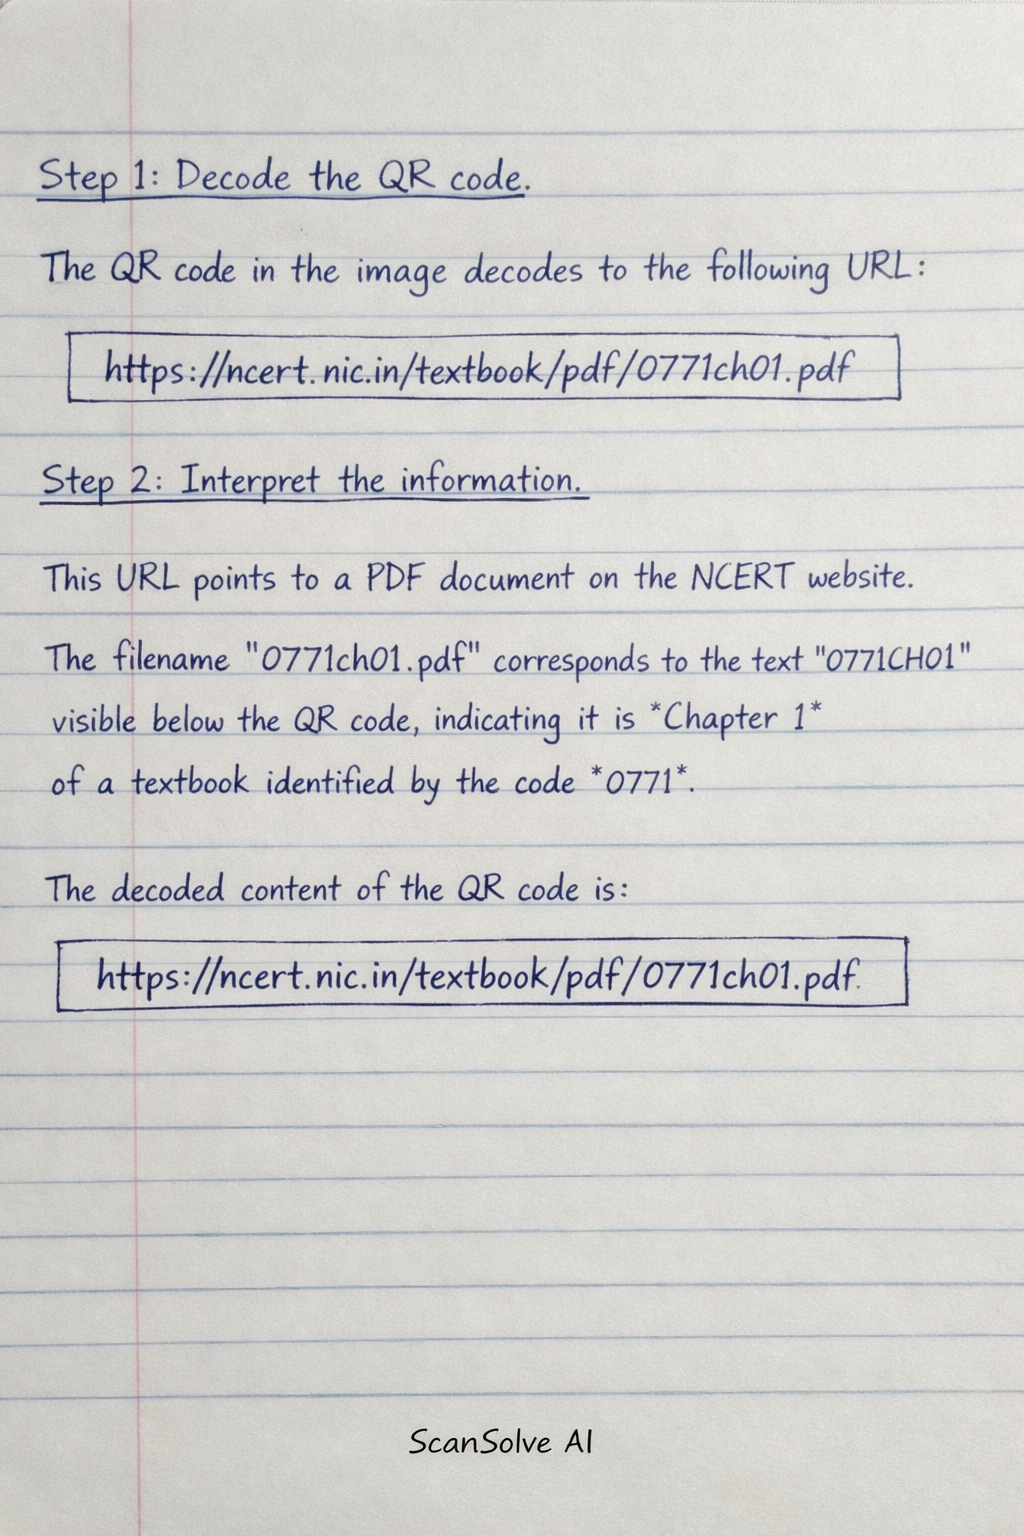 Step 1: Decode the QR code.
The QR code in the image decodes to the following URL:
https://ncert.nic.in/textbook/pdf/0771ch01.pdf
Step 2: Interpret the information.
This URL points to a PDF document on the NCERT website.
The filename "0771ch01.pdf" corresponds to the text "0771CH01"
visible below the QR code, indicating it is *Chapter 1*
of a textbook identified by the code *0771*.
The decoded content of the QR code is:
https://ncert.nic.in/textbook/pdf/0771ch01.pdf.
ScanSolve AI